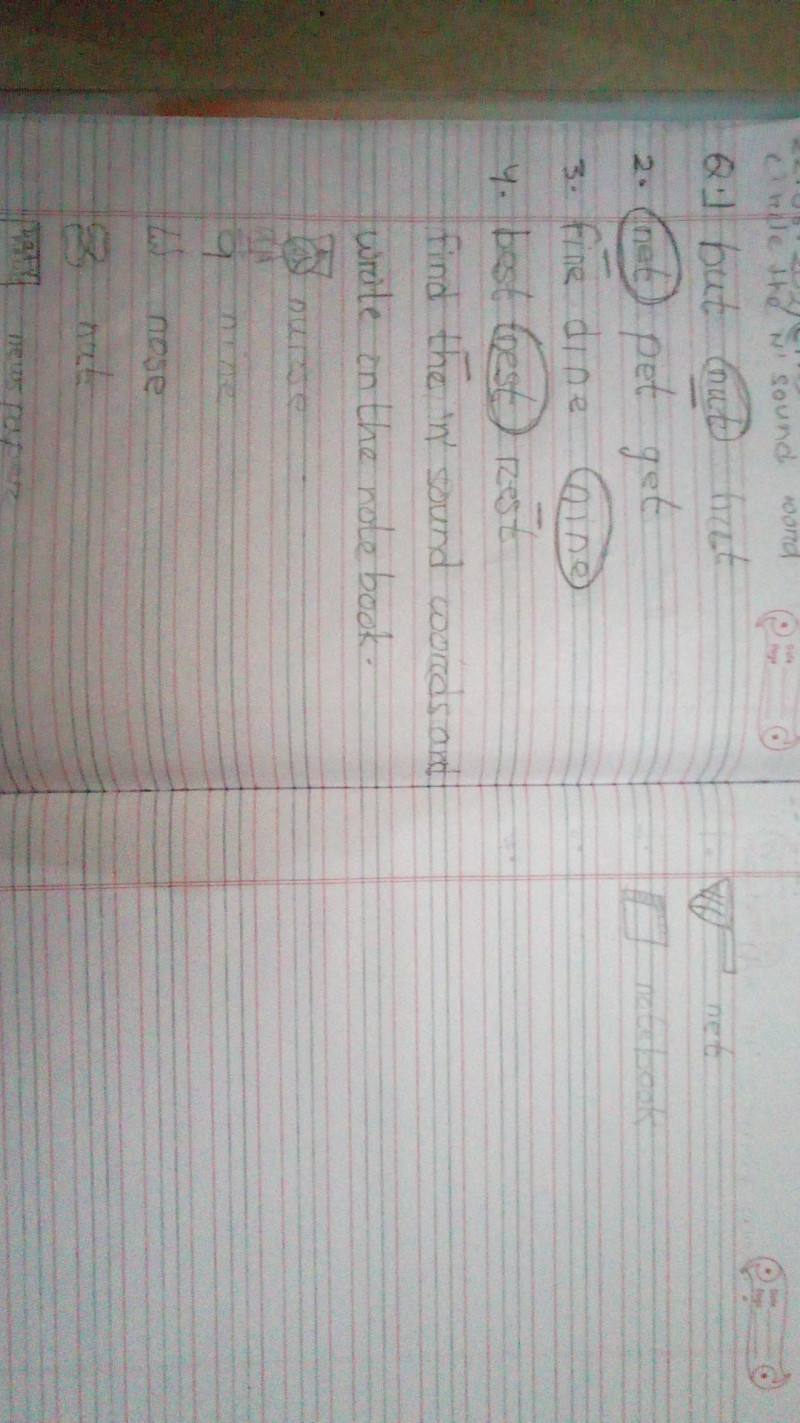 Circle the 'n' sound word
Q.1 but nut hut
2. net pet get
3. fine dine nine
4. best nest rest
find the 'n' sound words and
write in the note book.
nurse
9 nine
nose
nut
newspaper
net
notebook